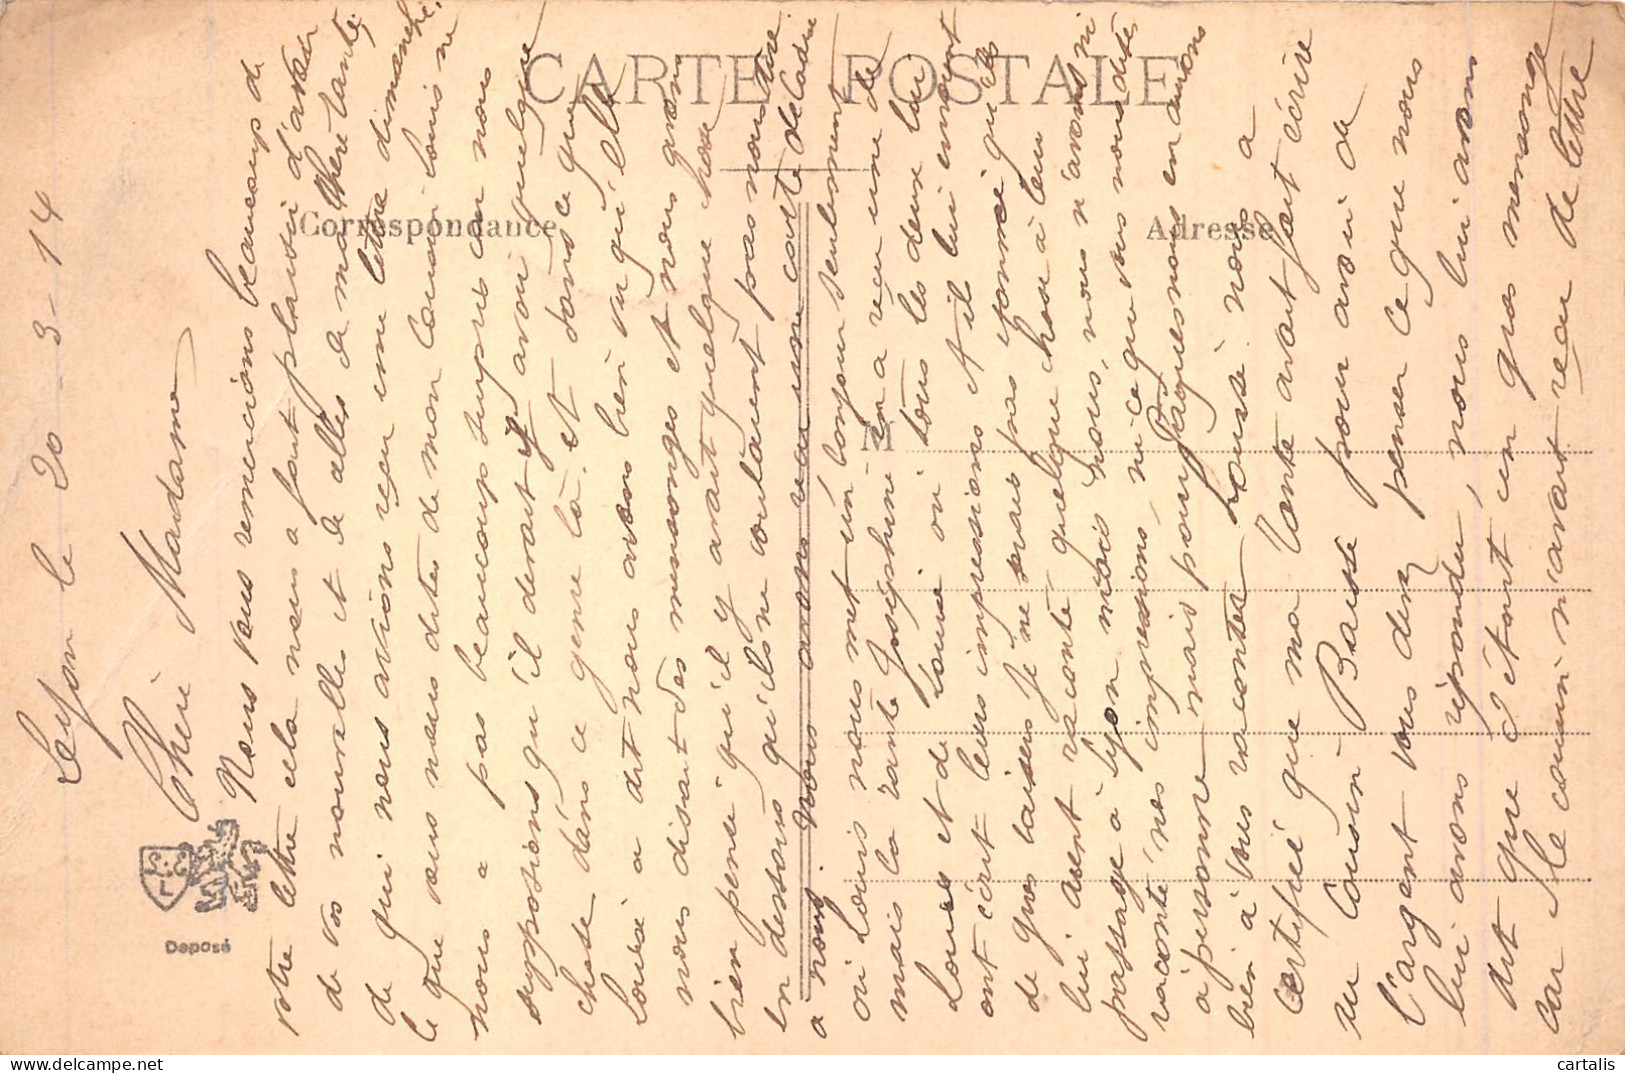 CARTE POSTALE
Correspondance
Adresse
M
S.E
L
Déposé
Lyon le 20-3-14
Chère Madame
Nous vous remercions beaucoup de
votre lettre cela nous a faut plaisir d'avoir
de vos nouvelles et de alles de ma chère tante,
de qui nous avions reçu une lettre dimanche.
Ce que vous nous dites de mon Cousin Louis ne
nous a pas beaucoup surpris car nous
supposions qu'il devait y avoir quelque
chose dans ce genre là. Et dans ce que
Louise a dit nous avons bien vu qu'elle
nous disait des mensonges et nous avons
bien pensé qu'il y avait quelque chose
en dessous qu'ils ne voulaient pas nous dire
a nous. Nous avons vu une carte de Cadix
où Louis nous met un bonjour seulement
mais la tante Joséphine en a reçu une de
Louis et de Louise où tous les deux lui
ont écrit leurs impressions et il lui envoient
de gros baisers je ne serais pas étonné qu'ils
lui aient raconté quelque chose à leur
passage à Lyon mais nous, nous n'avons ni
raconté nos impressions, ni ce que vous nous dites
à personne mais pour Pâques nous en aurons
bien à vous raconter Louise nous a
certifié que ma tante avait fait écrire
au Cousin Baisse pour avoir de
l'argent vous devez penser ce que nous
lui avons répondu, nous lui avons
dit que c'était un gros mensonge
car le cousin n'avait reçu de lettre